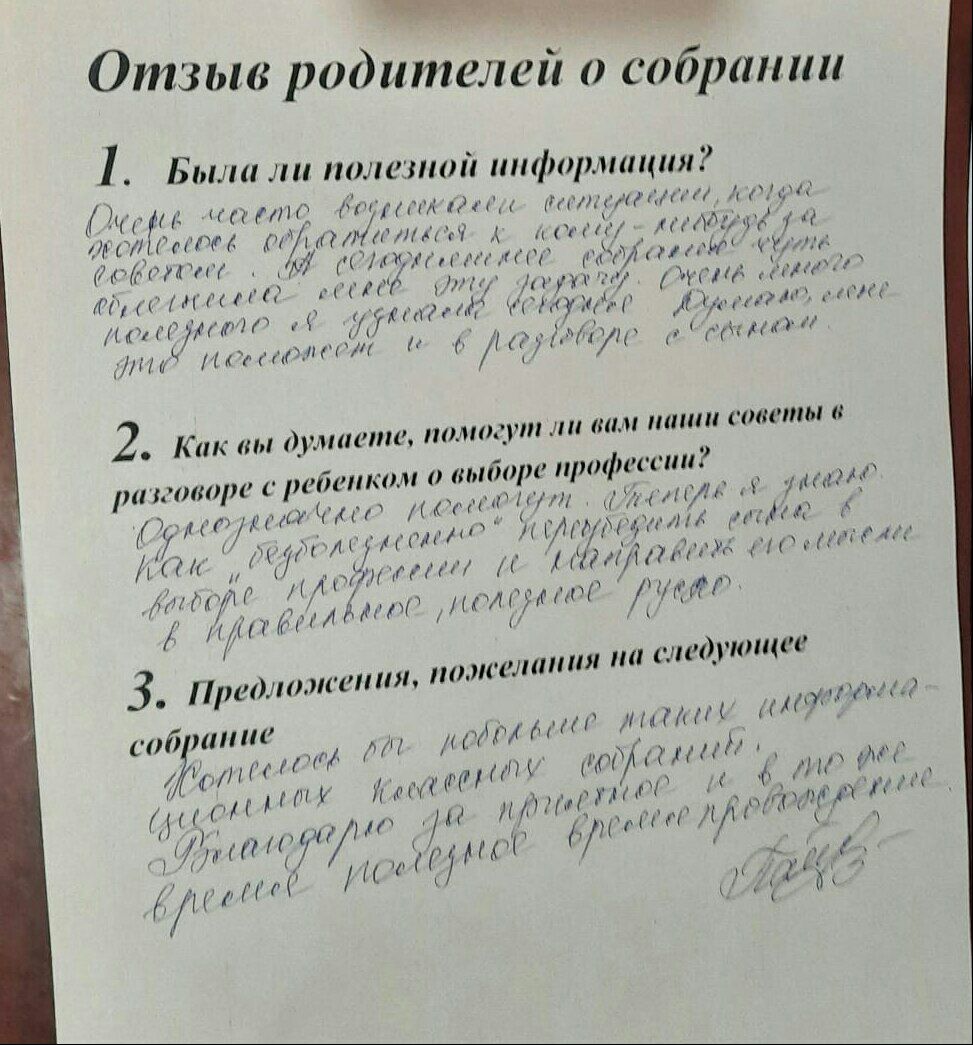 Отзыв родителей о собрании
1. Была ли полезной информация?
Очень часто возникали ситуации, когда
хотелось обратиться к кому-нибудь за
советом. А сегодняшнее собрание чуть
облегчила мне эту задачу. Очень много
полезного я узнала сегодня Думаю, мне
это поможет и в разговоре с сыном.
2. Как вы думаете, помогут ли вам наши советы в
разговоре с ребенком о выборе профессии?
Однозначно помогут. Теперь я знаю
как „безболезненно" переубедить сына в
выборе профессии и направить его мысли
в правильное, полезное русло.
3. Предложения, пожелания на следующее
собрание
Хотелось бы побольше таких информа-
ционных классных собраний.
Благодарю за приятное и в то же
время полезное время провождение.